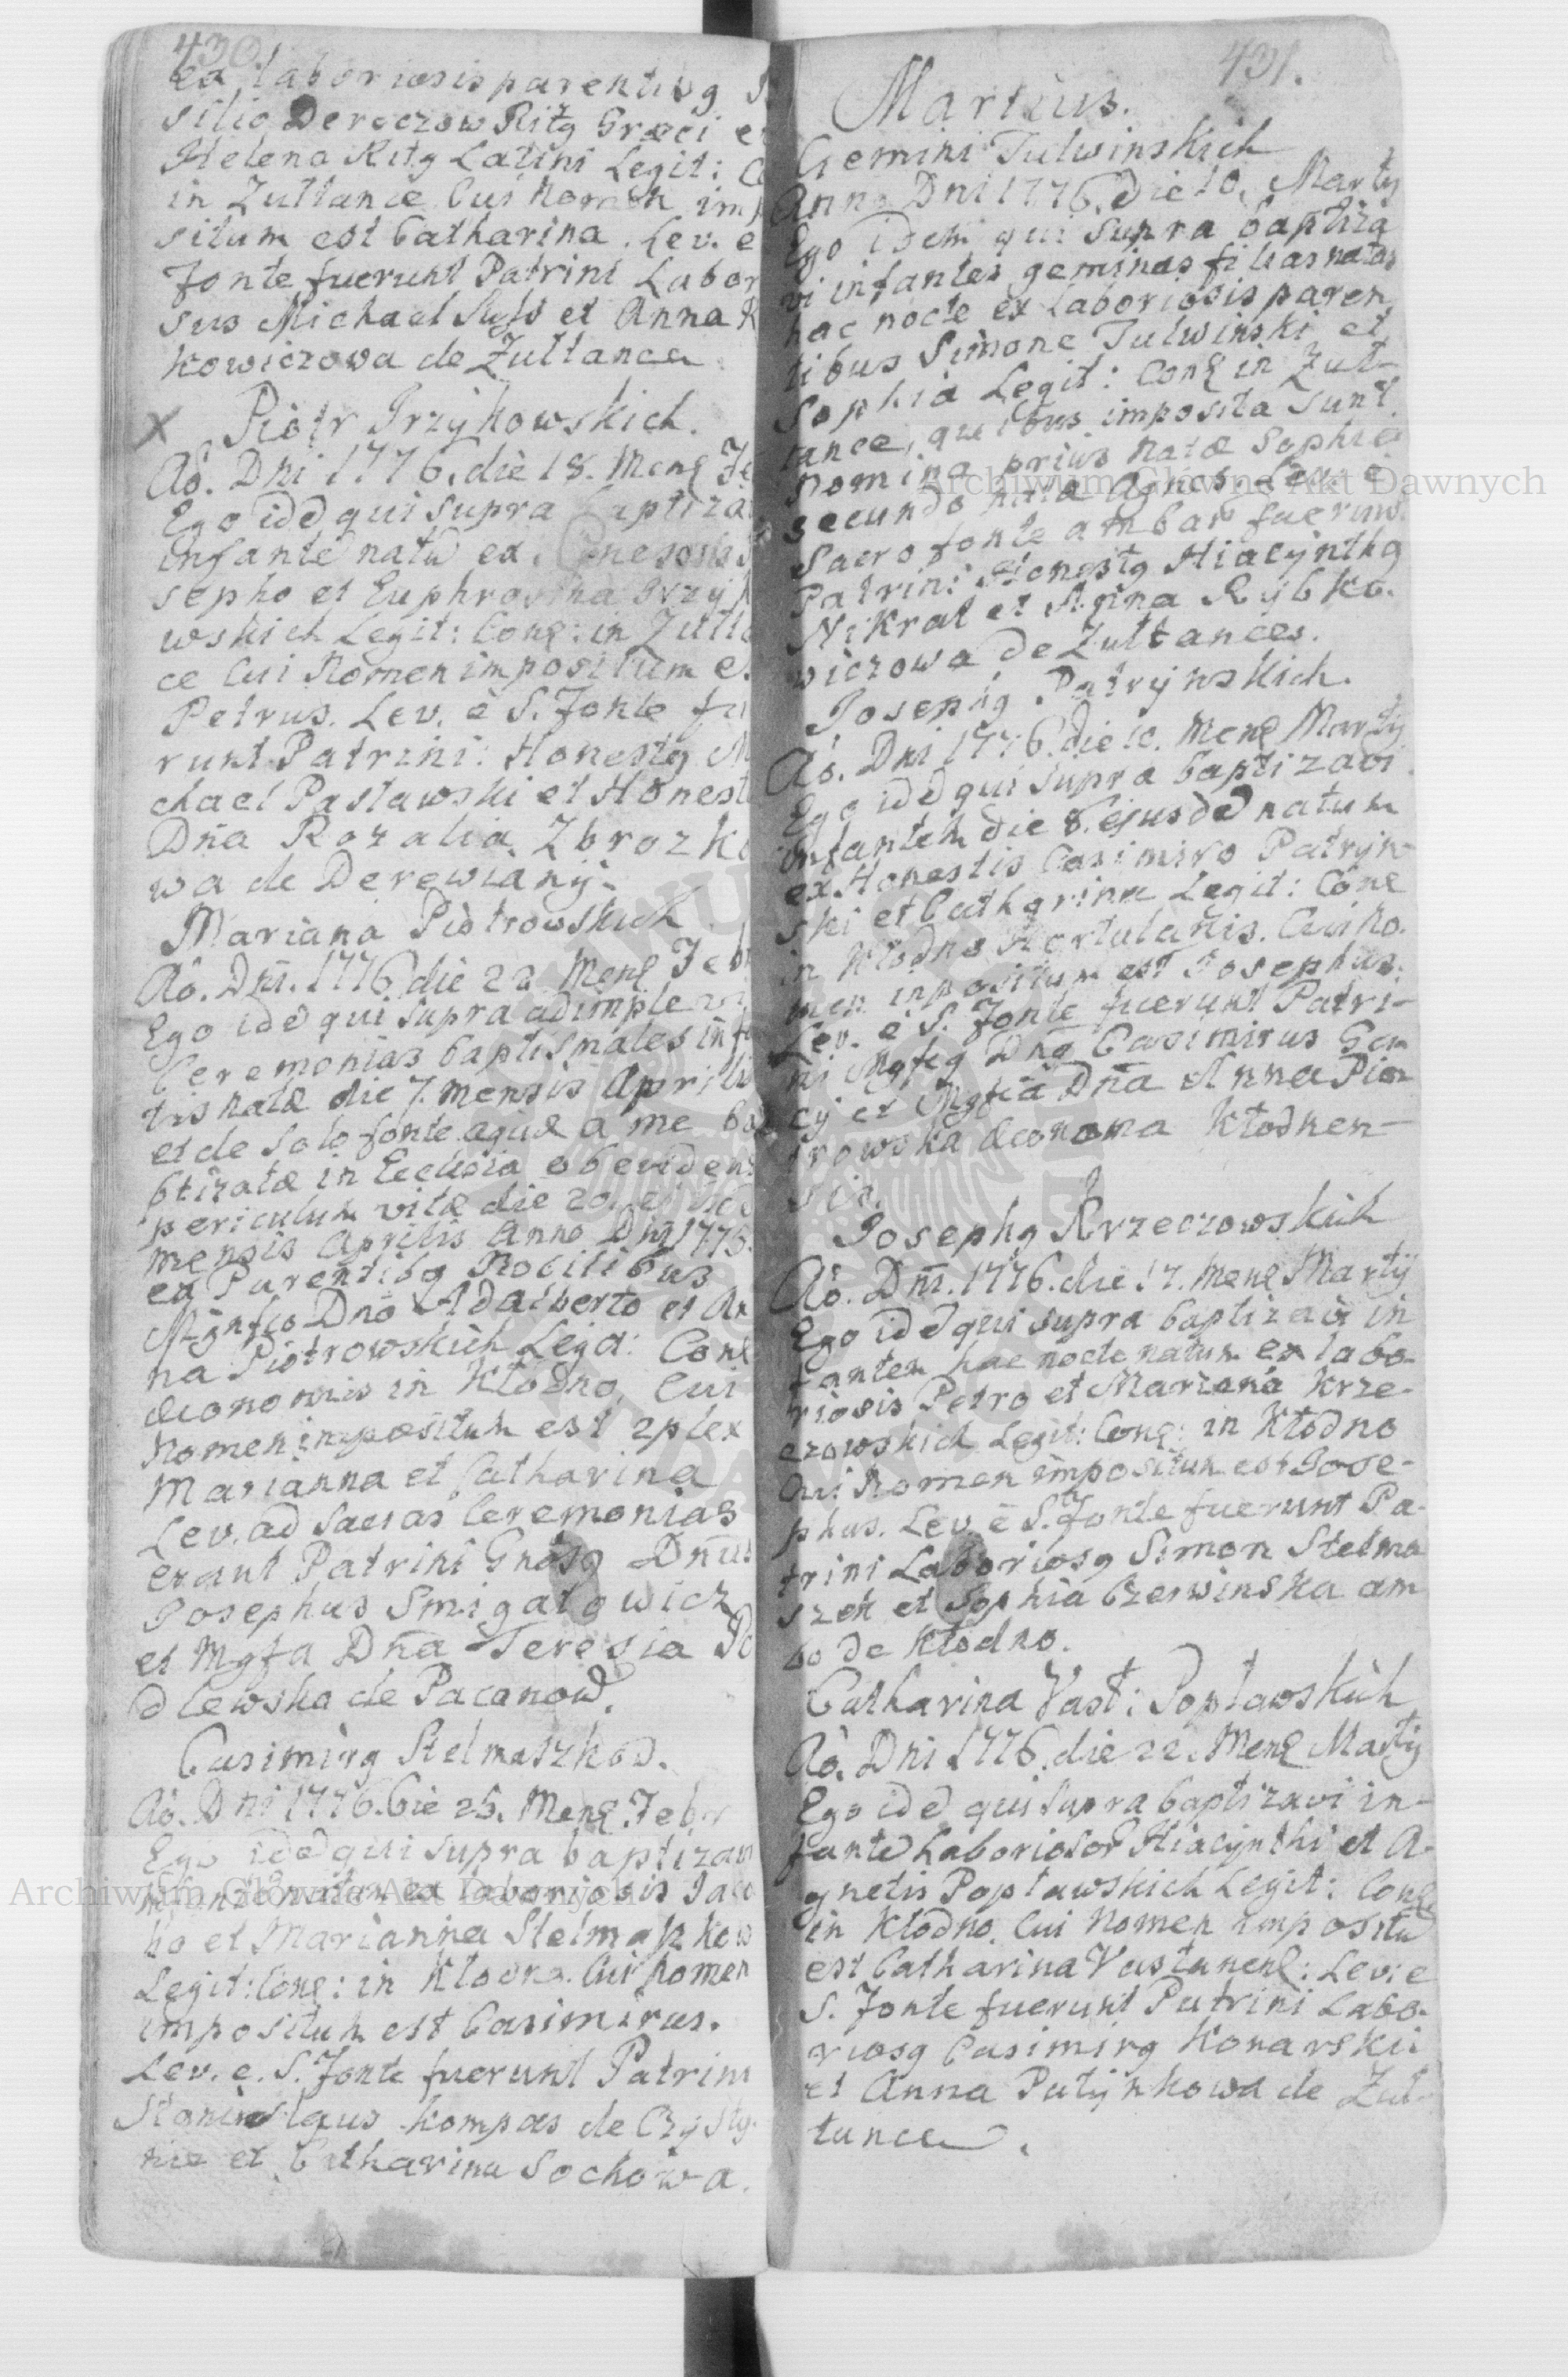 430.
ex laboriosis parentibq
silio Dereczow Ritq Græci et
Helena Ritq Latini Legit:
in Zultance Cui Nomen im
situm est Catharina. Lev. e
Fonte fuerunt Patrini Labor
sus Michael Suss et Anna R
kowiczowa de Zultance
X Piotr Irzykowskich.
Aö. Dni 1776. die 18. Mens Fe
Ego ide qui supra baptiza
infante natu ex
sepho et Euphrosina Irzyk
wskich Legit: Cons: in Zulta
ce Cui Nomen impositum e
Petrus. Lev. è S. Fonte fu
runt Patrini: Honestq M
chael Pastawski et Honest
Dña Rozalia Zbrozko
wa de Derewiany.
Mariana Piotrowskich
Aö. Dni. 1776 die 22 Mens Feb
Ego ide qui supra adimplevi
Ceremonias baptismales infa
tis natæ die 7. mensis Aprilis
et de solo fonte aquæ a me ba
btizatæ in Ecclesia ob eviden
periculum vitæ die 20
mensis Aprilis Anno Dni 1775.
ex Parentibq Nobilibus
Mgnfco Dno Adalberto et An
na Piotrowskich Legit: Cons
æconomis in Kłodno, Cui
Nomen impositum est 2plex
Marianna et Catharina
Lev. ad sacras Ceremonias
erant Patrini Gnosq Dñus
Josephus Smigalowicz
et Mgfa Dña Teresia Po
dlewska de Pacanow.
Casimirq Stelmaszkow.
Aö. Dni 1776. Die 25. Mens. Febr
Ego ide qui supra baptizavi
infante natum ex laboriosis Jaco
bo et Marianna Stelmaszkow
Legit: Cons: in Kłodno. Cui Nomen
impositum est Casimirus.
Lev. e. S. Fonte fuerunt Patrini
Stanislaus Kompas de Czysty.
nie et Catharina Sochowa.
431.
Martius.
Gemini Tulwinskich
Anno Dni 1776. Die 10. Marty
Ego idem qui supra baptiza
vi infantes geminas filias natas
hac nocte ex Laboriosis paren
tibus Simone Tulwinski et
Sophia Legit: Cons in Zul-
tance, quibus imposita sunt
Nomina prius natæ Sophia
secundo natæ Agnes. Lev. è
Sacro fonte ambas fuerunt
Patrini Honestq Hiacynthq
Nikrat et Anna Rybko.
wiczowa de Zultances.
Josephq Patrynskich.
Aö. Dni 1776. die 10. Mens Marty
Ego ide qui supra baptizavi
infantem die 8. ejusde natum
ex Honestis Casimiro Patryn-
ski et Catharina Legit: Cons
in Kłodno Hortulanis. Cui No.
men impositum est Josephus.
Lev. e S. Fonte fuerunt Patri-
ni Mgfcq Dnq Casimirus Gan
cy et Mgfca Dña Anna Pio-
trowska æconoma Kłodnen-
sis.
Josephq Krzeczowskich
Aö. Dni. 1776. die 17. Mens Martÿ
Ego ide qui supra baptizavi in
fantem hac nocte natum ex labo-
riosis Petro et Mariana Krze-
czowskich Legit: Cons: in Kłodno
Cui Nomen impositum est Jose-
phus. Lev. è S. Fonte fuerunt Pa-
trini Laboriosq Simon Stelma
szek et Sophia Czerwinska am
bo de Kłodno.
Catharina Vast: Poplawskich
Aö. Dni 1776. die 22. Mens Martÿ
Ego ide qui supra baptizavi in-
fante Laborioso Hiacynthi et A-
gnetis Poplawskich Legit: Cons
in Kłodno. Cui Nomen impositu
est Catharina Vastanens: Lev: e
S. Fonte fuerunt Patrini Labo-
riosq Casimirq Konarski
et Anna Patynkowa de Zul-
tance.
Archiwum Główne Akt Dawnych
Archiwum Główne Akt Dawnych